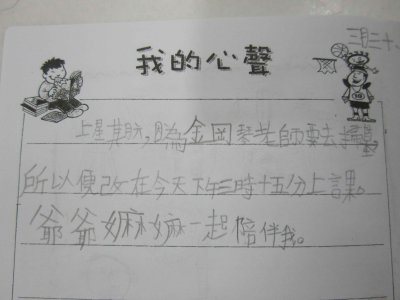 三月二十
我的心聲
上星其朋,因為金岡琴老師要去掃墓
所以便改在今天下午三時十五分上課。
爺爺嫲嫲一起陪伴我。